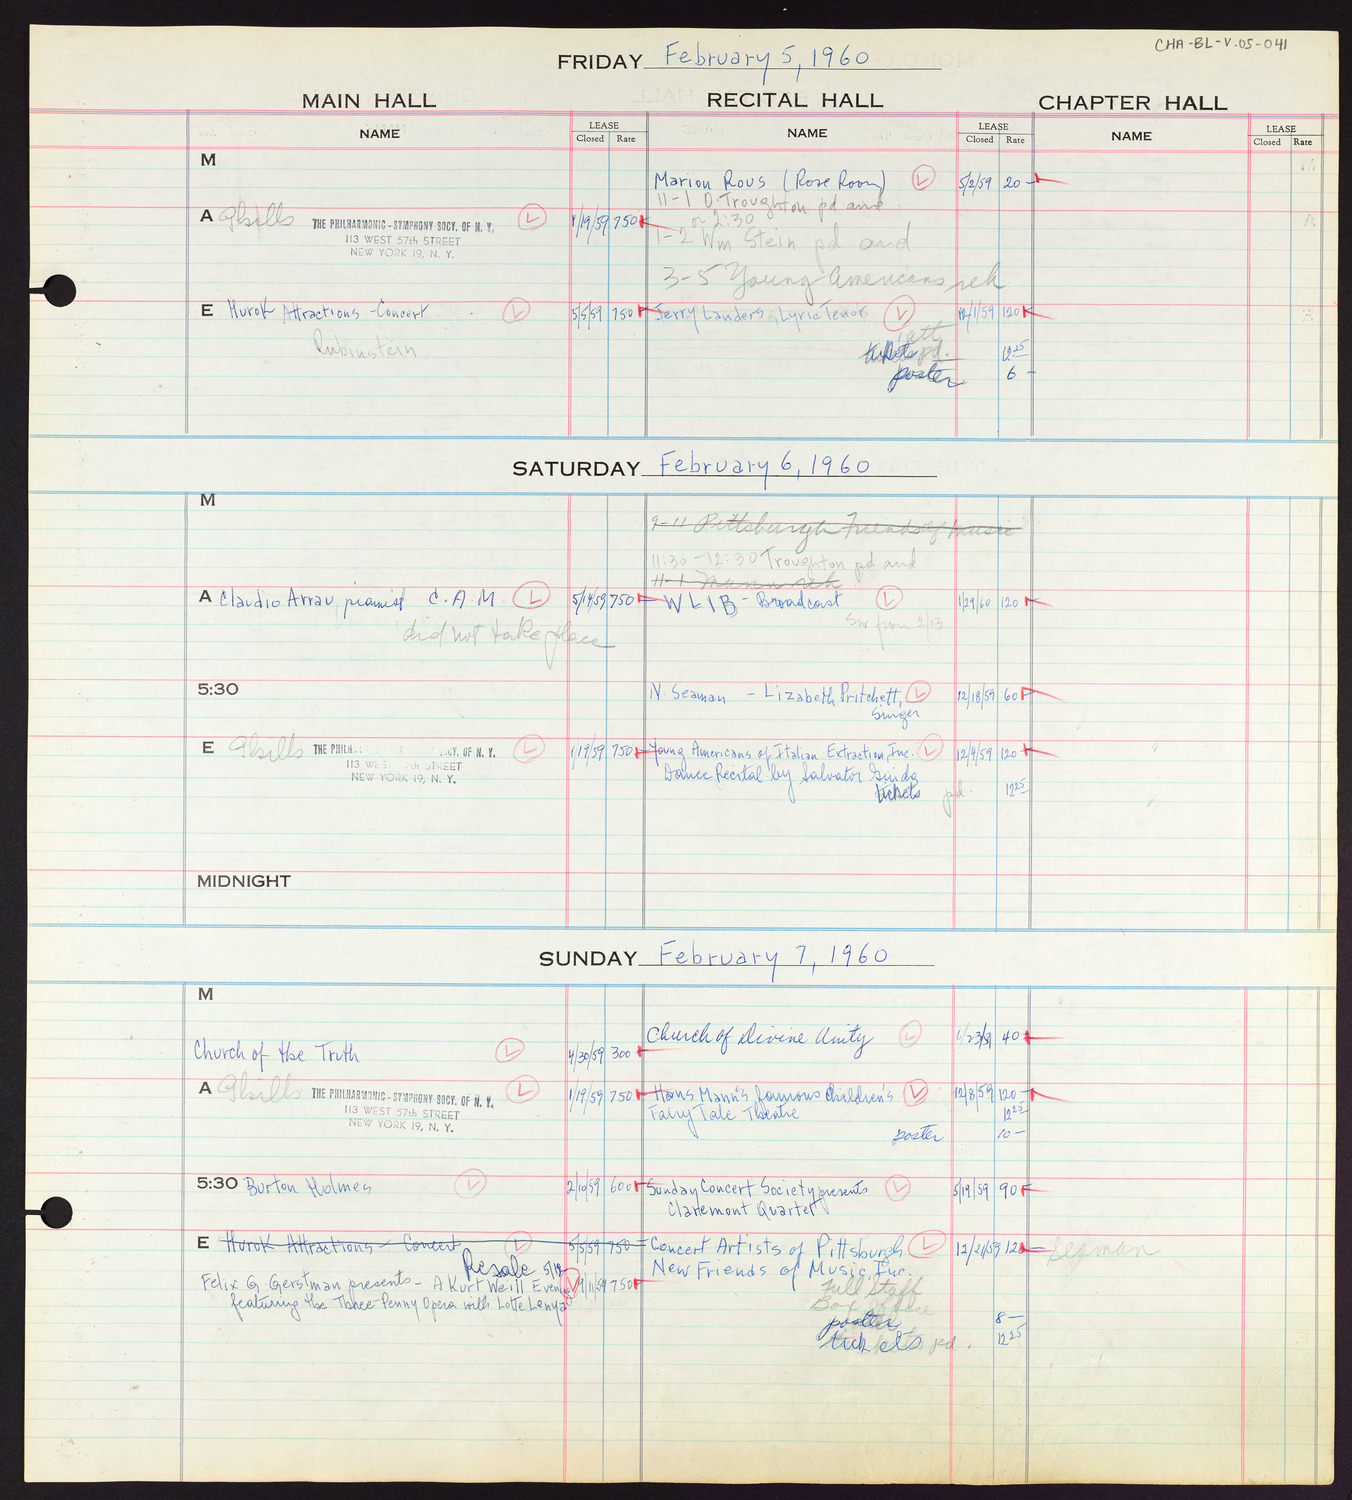 CHA-BL-V.05-041
FRIDAY February 5, 1960
MAIN HALL RECITAL HALL CHAPTER HALL
NAME LEASE Closed Rate NAME LEASE Closed Rate NAME LEASE Closed Rate
M
Marion Rous (Rose Room) L 5/2/59 20 -
11-1 D. Troughton pd and
or 2:30
A THE PHILHARMONIC-SYMPHONY SOCY. OF N. Y. L 1/19/59 750
113 WEST 57th STREET
NEW YORK 19, N. Y.
1-2 Wm Stein pd and
3-5 Young Americans reh
E Hurok Attractions - Concert L 5/5/59 750 Jerry Landers, Lyric Tenor L 12/1/59 120
Rubinstein
tickets pd. 12 25
poster 6 -
SATURDAY February 6, 1960
M
9-11 Pittsburgh Friends of Music
11:30-12:30 Troughton pd and
11-1 Mann reh
A Claudio Arrau, pianist C.A.M. L 5/14/59 750 WLIB - Broadcast L 1/29/60 120
did not take place
from 2/13
5:30 N. Seaman - Lizabeth Pritchett, L 12/18/59 60
Singer
E THE PHILH SOCY. OF N. Y. L 1/19/59 750 Young Americans of Italian Extraction, Inc. L 12/4/59 120
113 WES 7th STREET
NEW YORK 19, N. Y.
Dance Recital by Salvator Guida
tickets pd. 12 25
MIDNIGHT
SUNDAY February 7, 1960
M
Church of Divine Unity L 1/23/59 40
Church of the Truth L 4/30/59 300
A THE PHILHARMONIC-SYMPHONY SOCY. OF N. Y. L 1/19/59 750 Hans Mann's famous Children's L 12/8/59 120 -
113 WEST 57th STREET
NEW YORK 19, N. Y.
Fairy Tale Theatre 12 25
poster 10 -
5:30 Burton Holmes L 2/10/59 600 Sunday Concert Society presents L 5/19/59 90
Claremont Quartet
E Hurok Attractions - Concert L 5/5/59 750 Concert Artists of Pittsburgh L 12/21/59 120 Seaman
Resale 5/12
New Friends of Music, Inc.
Felix G. Gerstman presents - A Kurt Weill Evening L 9/11/59 750
featuring the Three Penny Opera with Lotte Lenya
Full Staff
Box Office
poster 8 -
tickets pd. 12 25